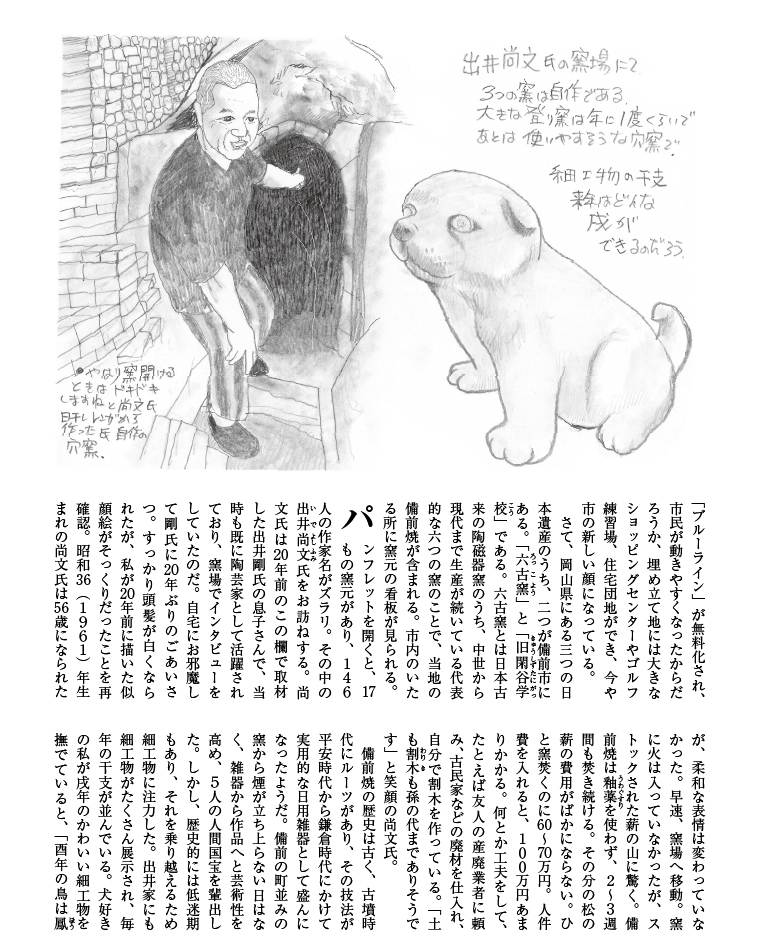 出井尚文氏の窯場にて
3つの窯は自作である。
大きな登り窯は年に1度くらいで
あとは使いやすそうな穴窯で。
細工物の干支
来年はどんな
戌が
できるのだろう。
●やはり窯開ける
ときはドキドキ
しますねと尚文氏
日干しレンガから
作った氏自作の
穴窯。
「ブルーライン」が無料化され、
市民が動きやすくなったからだ
ろうか、埋め立て地には大きな
ショッピングセンターやゴルフ
練習場、住宅団地ができ、今や
市の新しい顔になっている。
さて、岡山県にある三つの日
本遺産のうち、二つが備前市に
ある。「六古窯」と「旧閑谷学
校」である。六古窯とは日本古
来の陶磁器窯のうち、中世から
現代まで生産が続いている代表
的な六つの窯のことで、当地の
備前焼が含まれる。市内のいた
る所に窯元の看板が見られる。
パンフレットを開くと、17
もの窯元があり、146
人の作家名がズラリ。その中の
出井尚文氏をお訪ねする。尚
文氏は20年前のこの欄で取材
した出井剛氏の息子さんで、当
時も既に陶芸家として活躍され
ており、窯場でインタビューを
していたのだ。自宅にお邪魔し
て剛氏に20年ぶりのごあいさ
つ。すっかり頭髪が白くなら
れたが、私が20年前に描いた似
顔絵がそっくりだったことを再
確認。昭和36（1961）年生
まれの尚文氏は56歳になられた
が、柔和な表情は変わっていな
かった。早速、窯場へ移動。窯
に火は入っていなかったが、ス
トックされた薪の山に驚く。備
前焼は釉薬を使わず、2〜3週
間も焚き続ける。その分の松の
薪の費用がばかにならない。ひ
と窯焚くのに60〜70万円。人件
費を入れると、100万円あま
りかかる。何とか工夫をして、
たとえば友人の産廃業者に頼
み、古民家などの廃材を仕入れ、
自分で割木を作っている。「土
も割木も孫の代までありそうで
す」と笑顔の尚文氏。
備前焼の歴史は古く、古墳時
代にルーツがあり、その技法が
平安時代から鎌倉時代にかけて
実用的な日用雑器として盛んに
なったようだ。備前の町並みの
窯から煙が立ち上らない日はな
く、雑器から作品へと芸術性を
高め、5人の人間国宝を輩出し
た。しかし、歴史的には低迷期
もあり、それを乗り越えるため
細工物に注力した。出井家にも
細工物がたくさん展示され、毎
年の干支が並んでいる。犬好き
の私が戌年のかわいい細工物を
撫でていると、「酉年の鳥は鳳